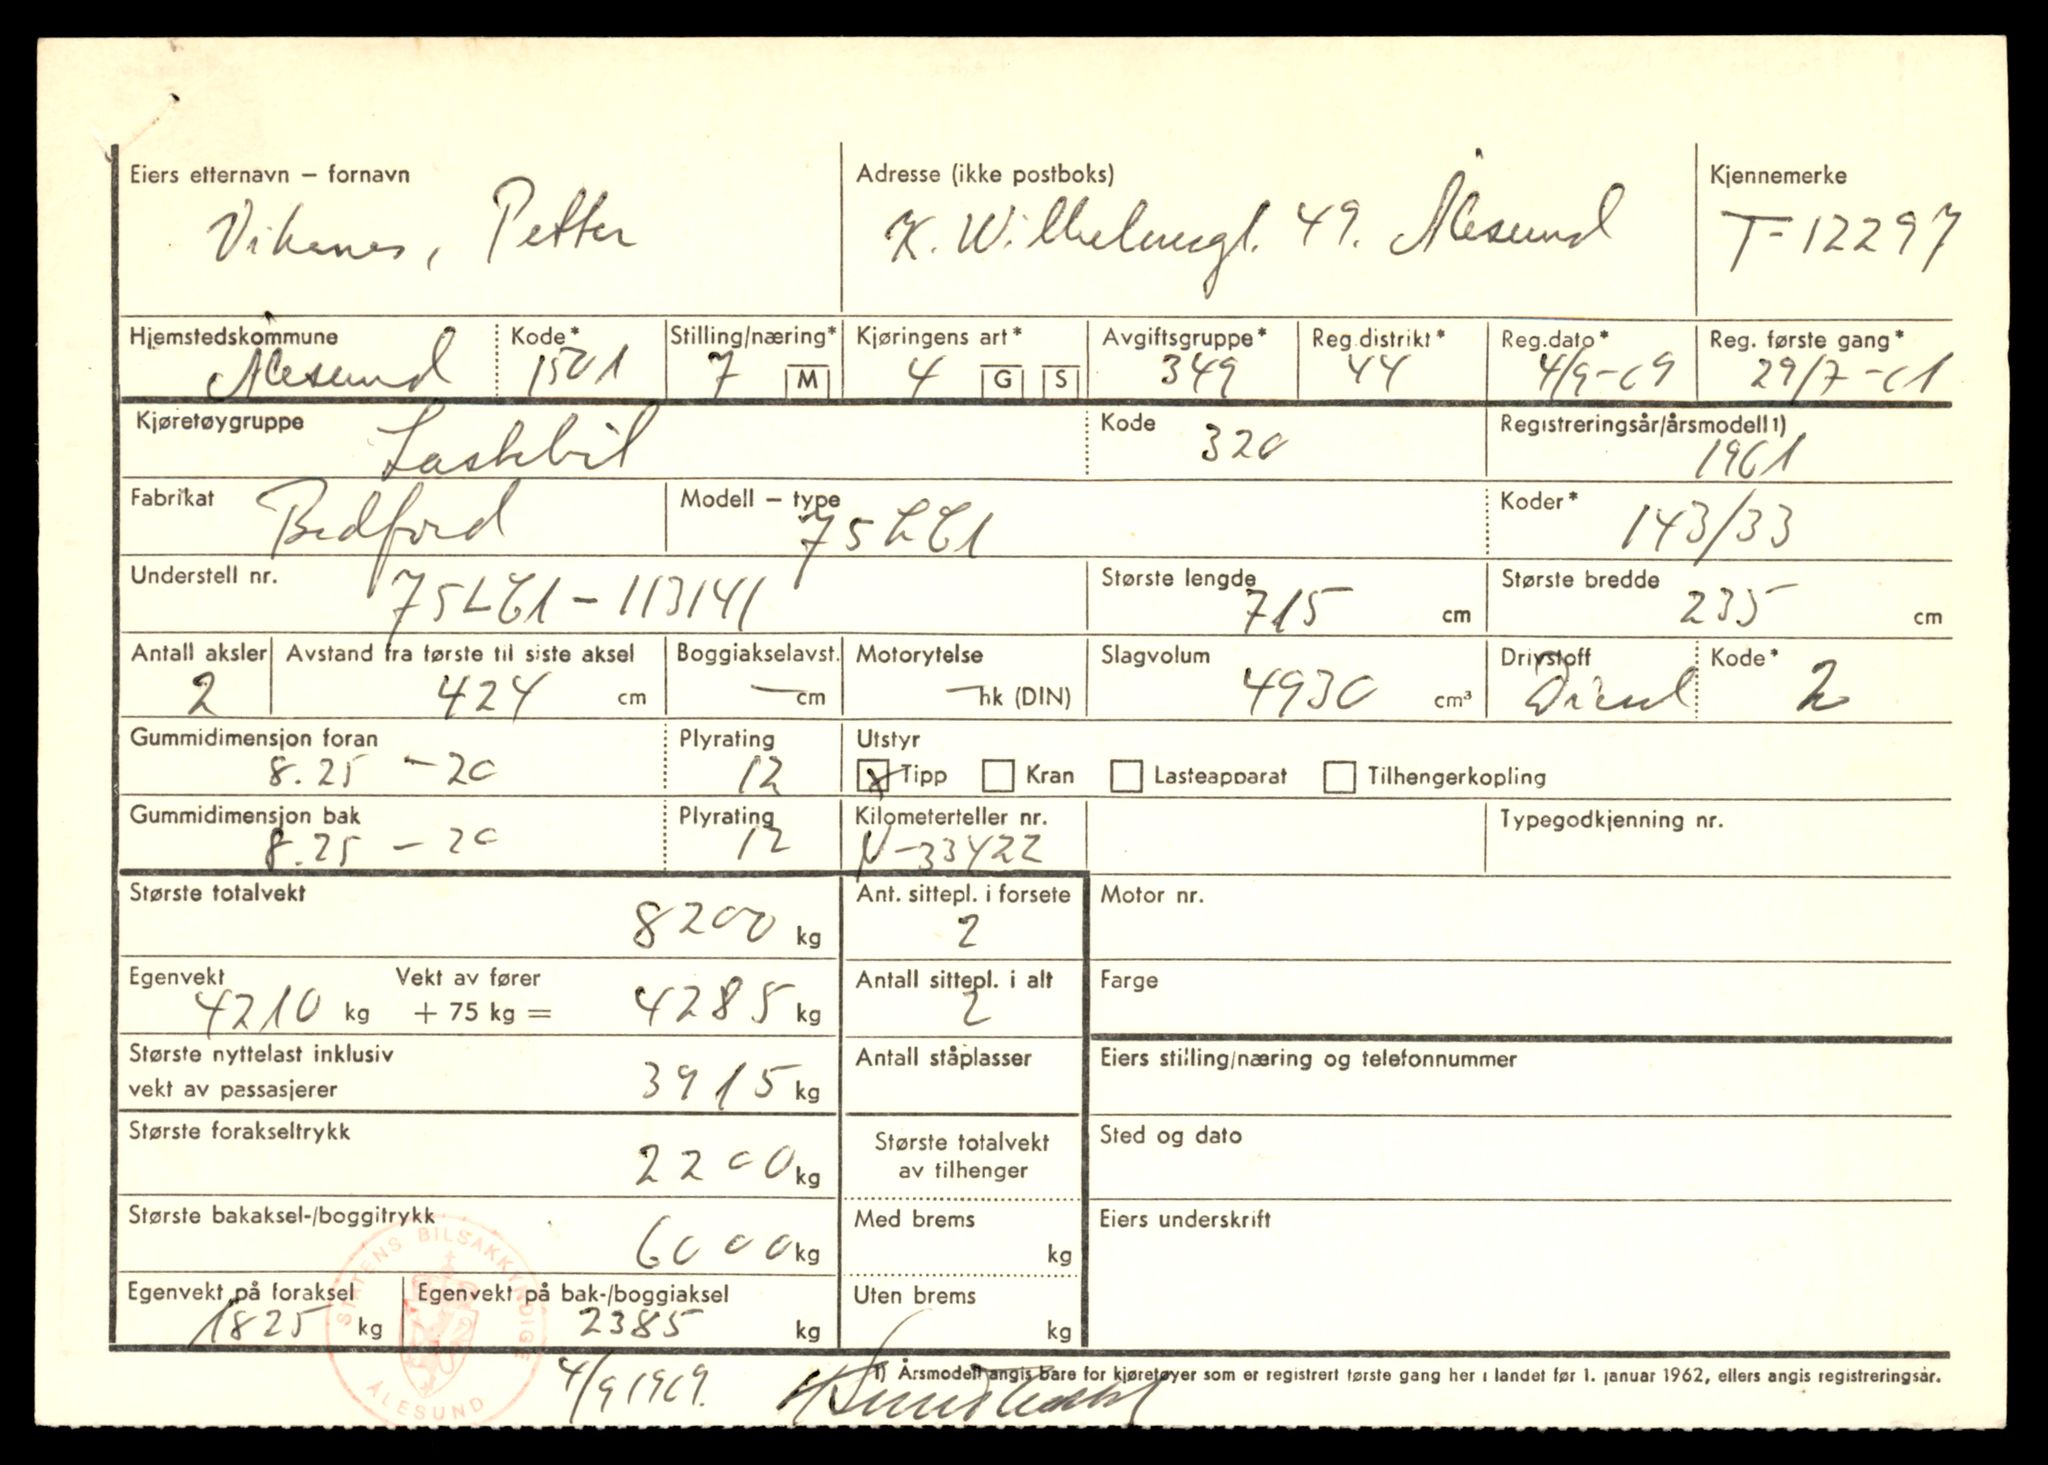 Eiers etternavn – fornavn
Vikenes, Petter
Adresse (ikke postboks)
K. Wilhelmsgt. 49. Ålesund
Kjennemerke
T-12297
Hjemstedskommune
Ålesund
Kode*
1501
Stilling/næring*
7 M
Kjøringens art*
4 G S
Avgiftsgruppe*
349
Reg.distrikt*
44
Reg.dato*
4/9-69
Reg. første gang*
29/7-61
Kjøretøygruppe
Lastebil
Kode
320
Registreringsår/årsmodell1)
1961
Fabrikat
Bedford
Modell – type
Koder*
143/33
Understell nr.
Største lengde
715 cm
Største bredde
235 cm
Antall aksler
2
Avstand fra første til siste aksel
424 cm
Boggiakselavst.
— cm
Motorytelse
— hk (DIN)
Slagvolum
4930 cm³
Drivstoff
Diesel
Kode*
2
Gummidimensjon foran
8.25 – 20
Plyrating
12
Utstyr
x Tipp Kran Lasteapparat Tilhengerkopling
Gummidimensjon bak
8.25 – 20
Plyrating
12
Kilometerteller nr.
N-33422
Typegodkjenning nr.
Største totalvekt
8200 kg
Ant. sittepl. i forsete
2
Motor nr.
Egenvekt
4210 kg
Vekt av fører
+ 75 kg = 4285 kg
Antall sittepl. i alt
2
Farge
Største nyttelast inklusiv
vekt av passasjerer
3915 kg
Antall ståplasser
Eiers stilling/næring og telefonnummer
Største forakseltrykk
2200 kg
Største totalvekt
av tilhenger
Sted og dato
Største bakaksel-/boggitrykk
6000 kg
Med brems
kg
Eiers underskrift
Egenvekt på foraksel
1825 kg
Egenvekt på bak-/boggiaksel
2385 kg
Uten brems
kg
STATENS BILSAKKYNDIGE
ÅLESUND
4/9 1969.
1) Årsmodell angis bare for kjøretøyer som er registrert første gang her i landet før 1. januar 1962, ellers angis registreringsår.